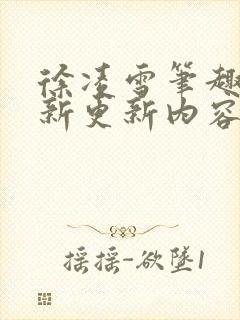 徐凌雪筆趣
新更新內容
摇摇-欲墜1